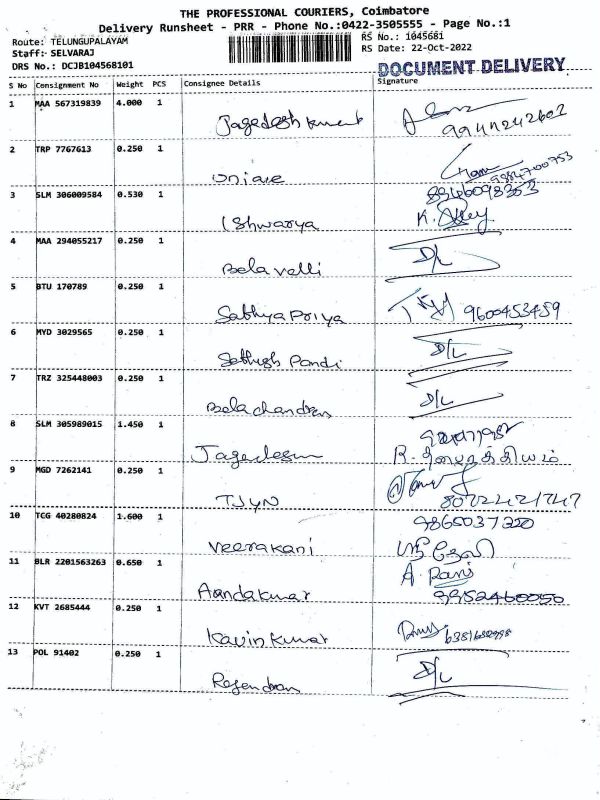 THE PROFESSIONAL COURIERS, Coimbatore
Delivery Runsheet - PRR - Phone No.:0422-3505555 - Page No.:1
Route: TELUNGUPALAYAM
RS No.: 1045681
Staff: SELVARAJ
RS Date: 22-Oct-2022
DRS No.: DCJB104568101
DOCUMENT DELIVERY
S No Consignment No Weight PCS Consignee Details Signature
1 MAA 567319839 4.000 1
Jagedesh kumar
2 TRP 7767613 0.250 1
9984700753
3 SLM 306009584 0.530 1
Ishwarya K.
4 MAA 294055217 0.250 1
Bala valli D/L
5 BTU 170789 0.250 1
Sathya Priya 9600453459
6 MYD 3029565 0.250 1
Sathish Pandi D/L
7 TRZ 325448003 0.250 1
Balachandran D/L
8 SLM 305989015 1.450 1
Jagadesan
9 MGD 7262141 0.250 1
TJYN
10 TCG 40280824 1.600 1 9865037220
Veerakani ஸ்ரீதேவி
11 BLR 2201563263 0.650 1 A. Rani
Aandakumar 9952460050
12 KVT 2685444 0.250 1
Kavin Kumar
13 POL 91402 0.250 1
Rajendran D/L